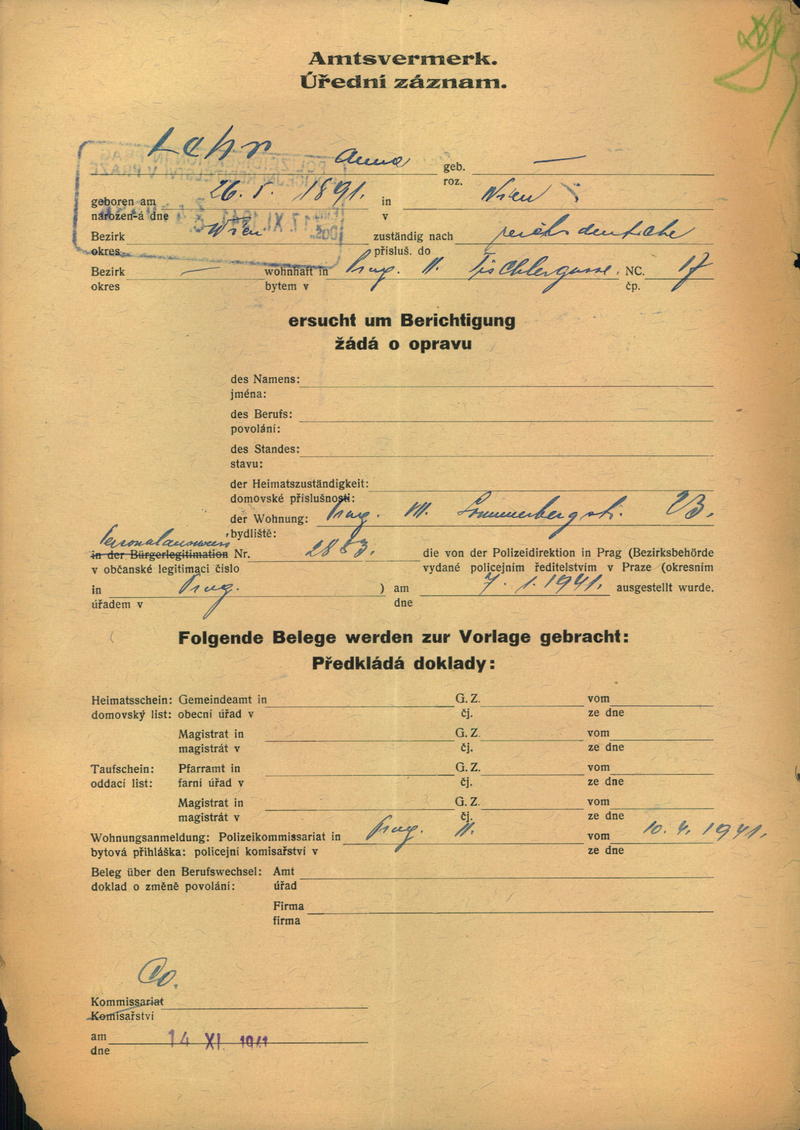 Amtsvermerk.
Úřední záznam.
Lehr Anna geb. —
roz.
geboren am 26. 5. 1891. in Wien
narozen-á dne v
Bezirk Wien zuständig nach reichsdeutsche
okres přísluš. do
Bezirk — wohnhaft in Prag. II. Tischlergasse. NC. 17
okres bytem v čp.
ersucht um Berichtigung
žádá o opravu
des Namens:
jména:
des Berufs:
povolání:
des Standes:
stavu:
der Heimatszuständigkeit:
domovské příslušnosti:
der Wohnung: Prag. 23.
bydliště:
Personalausweis
in der Bürgerlegitimation Nr. 2883. die von der Polizeidirektion in Prag (Bezirksbehörde
v občanské legitimaci číslo vydané policejním ředitelstvím v Praze (okresním
in Prag. ) am 7. 1. 1941. ausgestellt wurde.
úřadem v dne
Folgende Belege werden zur Vorlage gebracht:
Předkládá doklady:
Heimatsschein: Gemeindeamt in G. Z. vom
domovský list: obecní úřad v čj. ze dne
Magistrat in G. Z. vom
magistrát v čj. ze dne
Taufschein: Pfarramt in G. Z. vom
oddací list: farní úřad v čj. ze dne
Magistrat in G. Z. vom
magistrát v čj. ze dne
Wohnungsanmeldung: Polizeikommissariat in Prag. II. vom 10. 4. 1941.
bytová přihláška: policejní komisařství v ze dne
Beleg über den Berufswechsel: Amt
doklad o změně povolání: úřad
Firma
firma
Co.
Kommissariat
Komisařství
am 14 XI 1941
dne